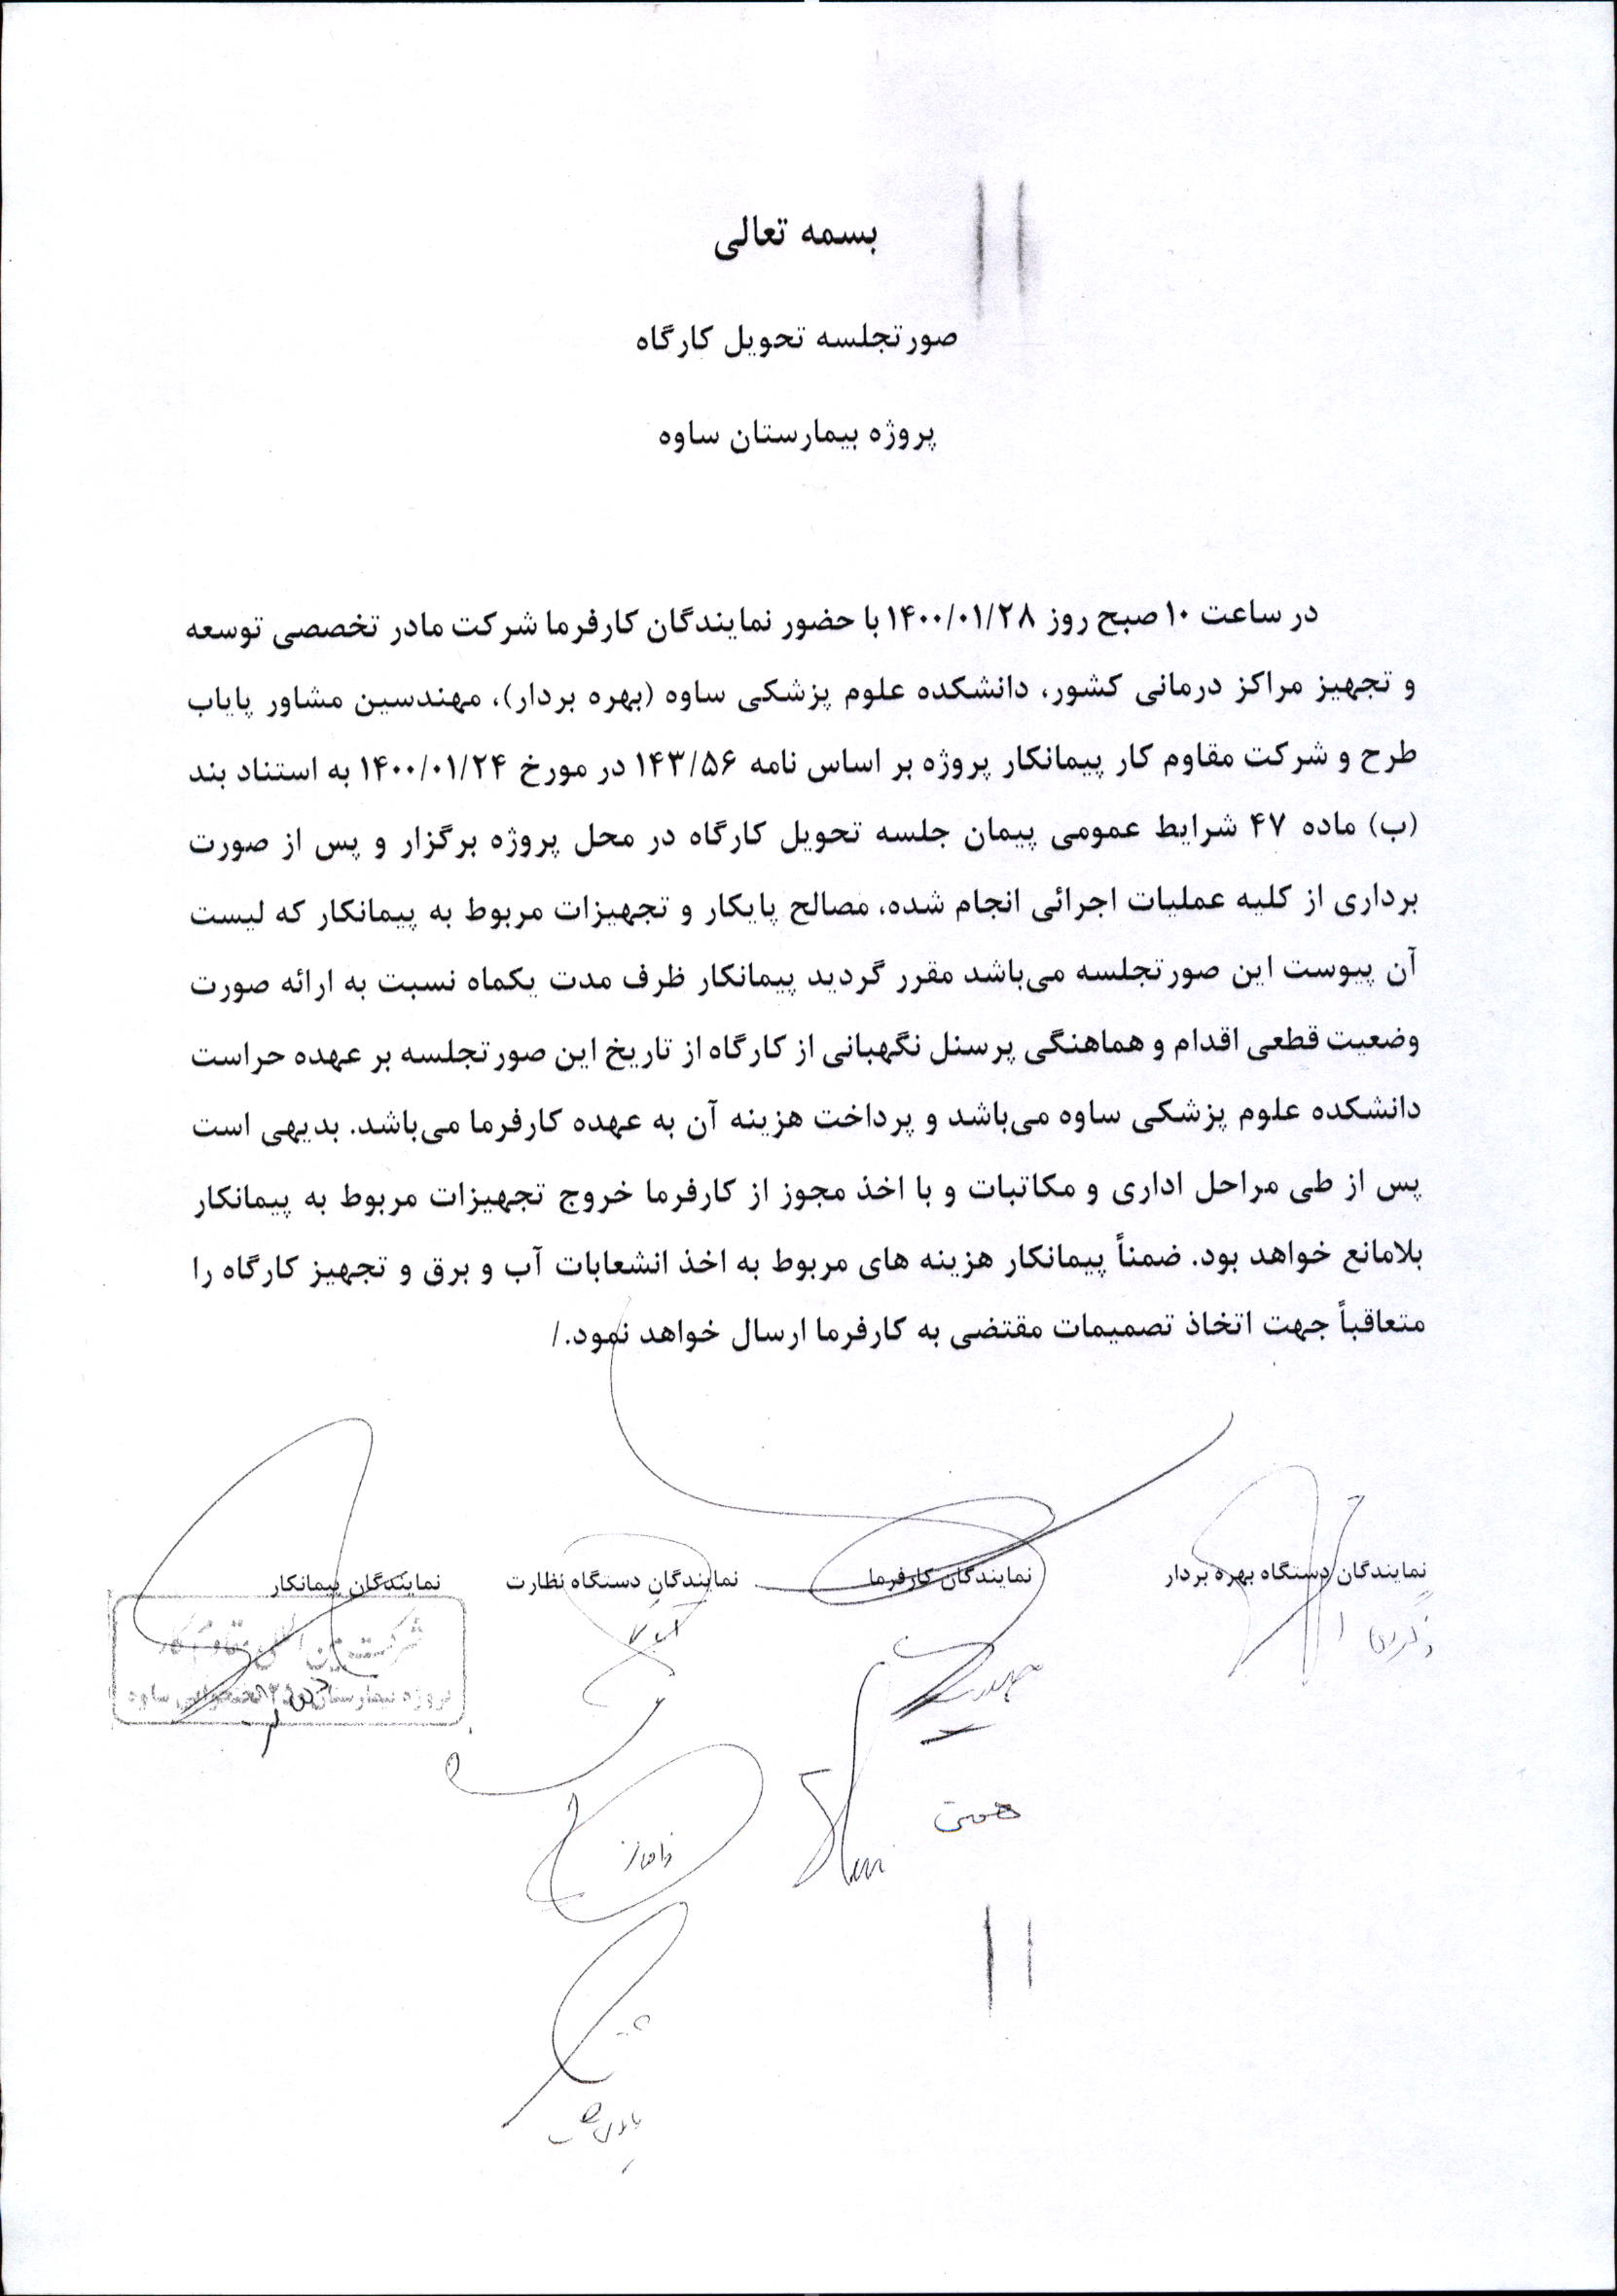 بسمه تعالی
صورتجلسه تحویل کارگاه
پروژه بیمارستان ساوه
در ساعت ۱۰ صبح روز ۱۴۰۰/۰۱/۲۸ با حضور نمایندگان کارفرما شرکت مادر تخصصی توسعه
و تجهیز مراکز درمانی کشور، دانشکده علوم پزشکی ساوه (بهره بردار)، مهندسین مشاور پایاب
طرح و شرکت مقاوم کار پیمانکار پروژه بر اساس نامه ۱۴۳/۵۶ در مورخ ۱۴۰۰/۰۱/۲۴ به استناد بند
(ب) ماده ۴۷ شرایط عمومی پیمان جلسه تحویل کارگاه در محل پروژه برگزار و پس از صورت
برداری از کلیه عملیات اجرائی انجام شده، مصالح پایکار و تجهیزات مربوط به پیمانکار که لیست
آن پیوست این صورتجلسه می‌باشد مقرر گردید پیمانکار ظرف مدت یکماه نسبت به ارائه صورت
وضعیت قطعی اقدام و هماهنگی پرسنل نگهبانی از کارگاه از تاریخ این صورتجلسه بر عهده حراست
دانشکده علوم پزشکی ساوه می‌باشد و پرداخت هزینه آن به عهده کارفرما می‌باشد. بدیهی است
پس از طی مراحل اداری و مکاتبات و با اخذ مجوز از کارفرما خروج تجهیزات مربوط به پیمانکار
بلامانع خواهد بود. ضمناً پیمانکار هزینه های مربوط به اخذ انشعابات آب و برق و تجهیز کارگاه را
متعاقباً جهت اتخاذ تصمیمات مقتضی به کارفرما ارسال خواهد نمود./
نمایندگان دستگاه بهره بردار نمایندگان کارفرما نمایندگان دستگاه نظارت نمایندگان پیمانکار
شرکت مقاوم کار
پروژه بیمارستان ساوه
همتی